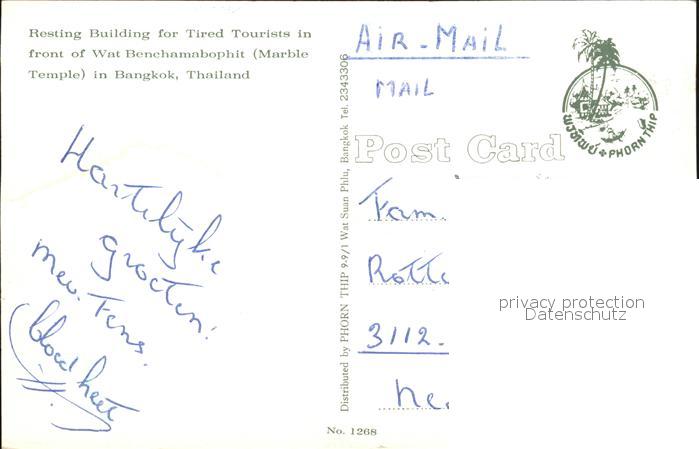 Resting Building for Tired Tourists in
front of Wat Benchamabophit (Marble
Temple) in Bangkok, Thailand
Hartelijke
groeten!
Mev.
Distributed by PHORN THIP 9-9/1 Wat Suan Phlu, Bangkok Tel. 2343306
No. 1268
AIR-MAIL
MAIL
Post Card
พรทิพย์ PHORN THIP
Fam.
Rotte
3112.
Ne.
privacy protection
Datenschutz